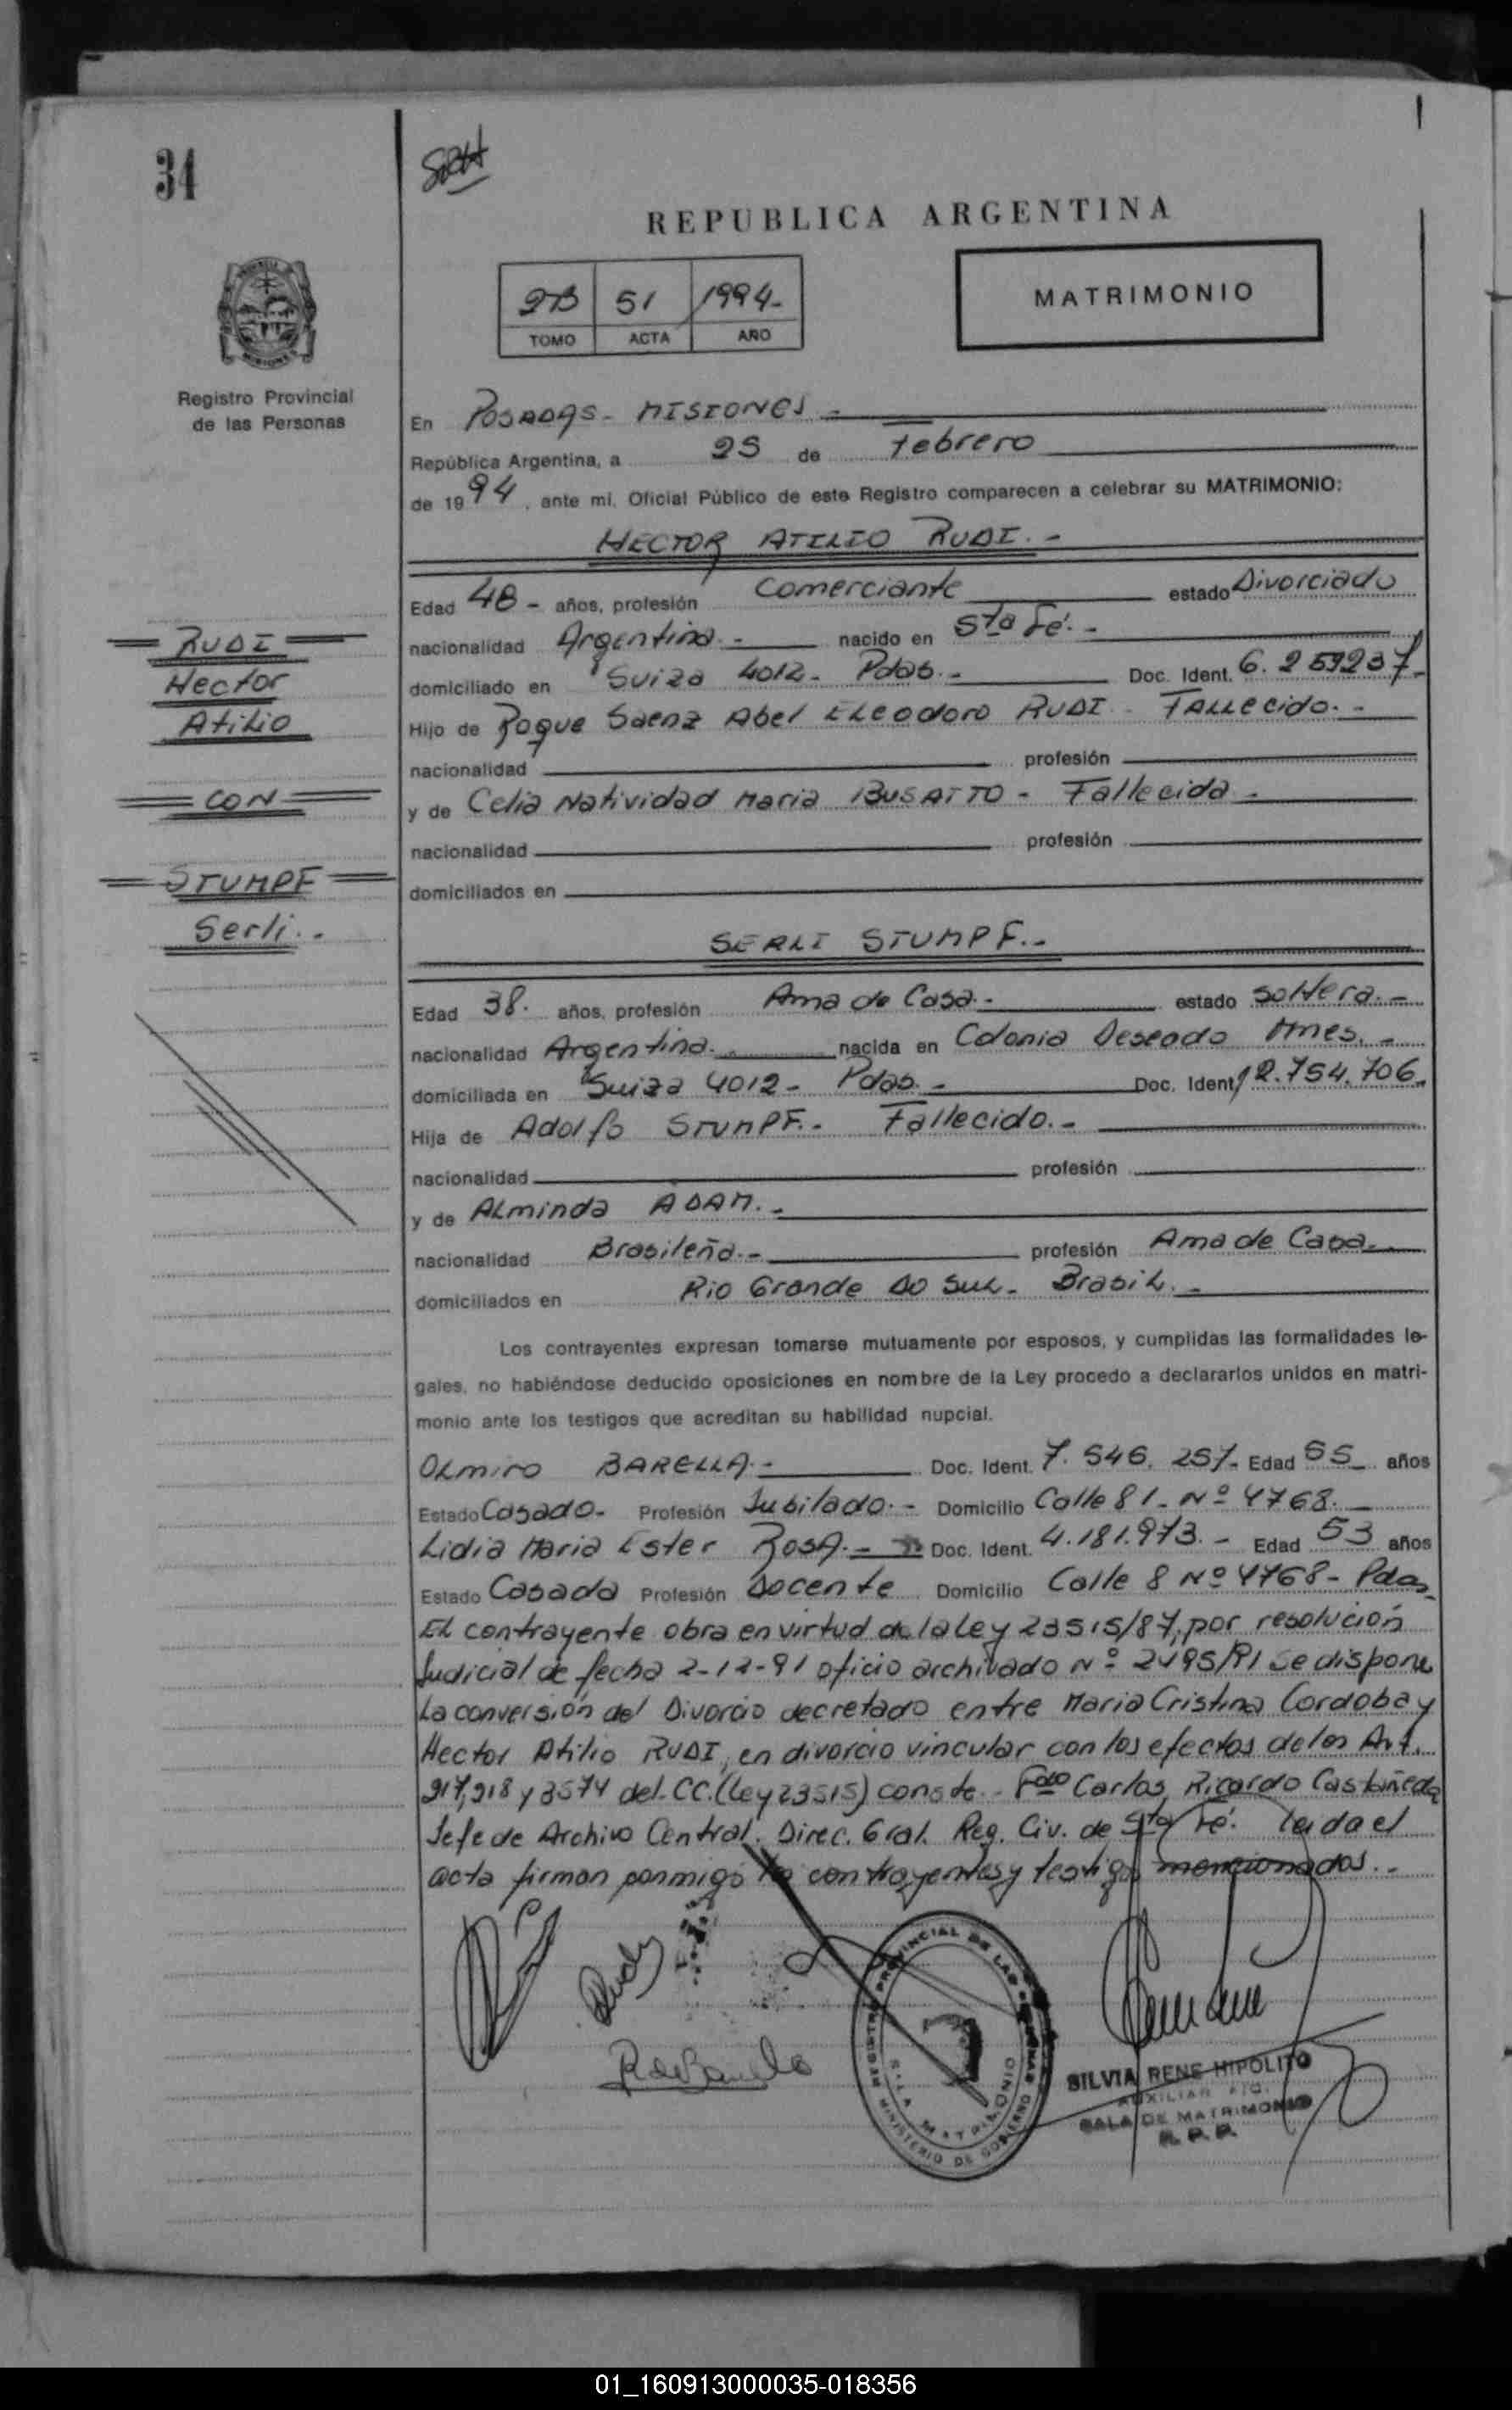 34
REPUBLICA ARGENTINA
2B 51 1994-
TOMO ACTA AÑO
MATRIMONIO
Registro Provincial
de las Personas
En POSADAS - MISIONES -
República Argentina, a 25 de febrero
de 1994, ante mi, Oficial Público de este Registro comparecen a celebrar su MATRIMONIO:
HECTOR ATILIO RUDI. -
Edad 48 - años, profesión Comerciante estado Divorciado
nacionalidad Argentina. - nacido en Sta Fé. -
domiciliado en Suiza 4012 - Pdas. - Doc. Ident. 6.259237-
Hijo de Roque Saenz Abel Eleodoro RUDI - Fallecido. -
nacionalidad profesión
y de Celia Natividad Maria BUSATTO - Fallecida -
nacionalidad profesión
domiciliados en
RUDI
Hector
Atilio
CON
STUMPF
Serli. -
SERLI STUMPF. -
Edad 38. años, profesión Ama de Casa. - estado Soltera. -
nacionalidad Argentina. - nacida en Colonia Deseado Mnes. -
domiciliada en Suiza 4012 - Pdas. - Doc. Ident. 12.754.706.
Hija de Adolfo STUMPF. - Fallecido. -
nacionalidad profesión
y de Alminda ADAM. -
nacionalidad Brasileña. - profesión Ama de Casa. -
domiciliados en Rio Grande do Sul - Brasil. -
Los contrayentes expresan tomarse mutuamente por esposos, y cumplidas las formalidades le-
gales, no habiéndose deducido oposiciones en nombre de la Ley procedo a declararlos unidos en matri-
monio ante los testigos que acreditan su habilidad nupcial.
Olmiro BARELLA. - Doc. Ident. 7.546.257- Edad 55 años
Estado Casado - Profesión Jubilado. - Domicilio Calle 81 - Nº 4768. -
Lidia Maria Ester ROSA. - Doc. Ident. 4.181.973. - Edad 53 años
Estado Casada Profesión Docente Domicilio Calle 8 Nº 4768 - Pdas
El contrayente obra en virtud de la Ley 23515/87, por resolución
Judicial de fecha 2-12-91 oficio archivado Nº 2495/91 se dispone
La conversión del Divorcio decretado entre Maria Cristina Cordoba y
Hector Atilio RUDI, en divorcio vincular con los efectos de los Art.
217, 218 y 3574 del CC. (Ley 23515) conste. - Fdo Carlos Ricardo Castañeda
Jefe de Archivo Central. Direc. Gral. Reg. Civ. de Sta Fé. Leida el
acta firman conmigo los contrayentes y testigos mencionados. -
REGISTRO PROVINCIAL DE LAS PERSONAS
SALA MATRIMONIO
MINISTERIO DE GOBIERNO
SILVIA RENE HIPOLITO
AUXILIAR
SALA DE MATRIMONIO
R. P. P.
01_160913000035-018356